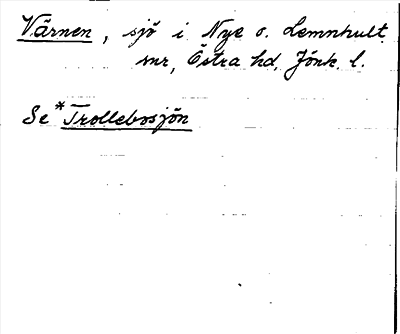 Värnen, sjö i Nye o. Lemnhult
snr, Östra hd, Jönk. l.
Se *Trollebosjön